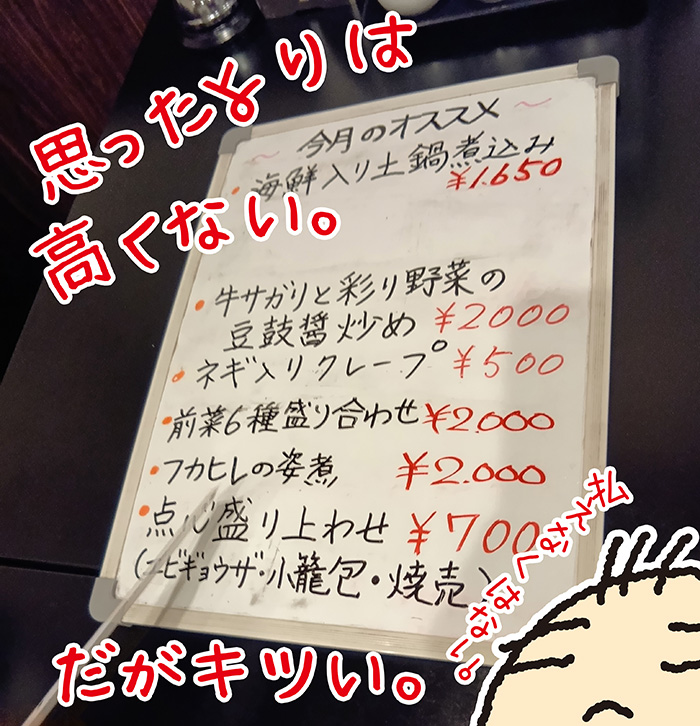 思ったよりは
高くない。
今月のオススメ
海鮮入り土鍋煮込み
¥1.650
牛サガリと彩り野菜の
豆鼓醤炒め ¥2000
ネギ入りクレープ ¥500
前菜6種盛り合わせ ¥2.000
フカヒレの姿煮 ¥2.000
点心盛り上わせ ¥700
(エビギョウザ・小籠包・焼売)
だがキツい。